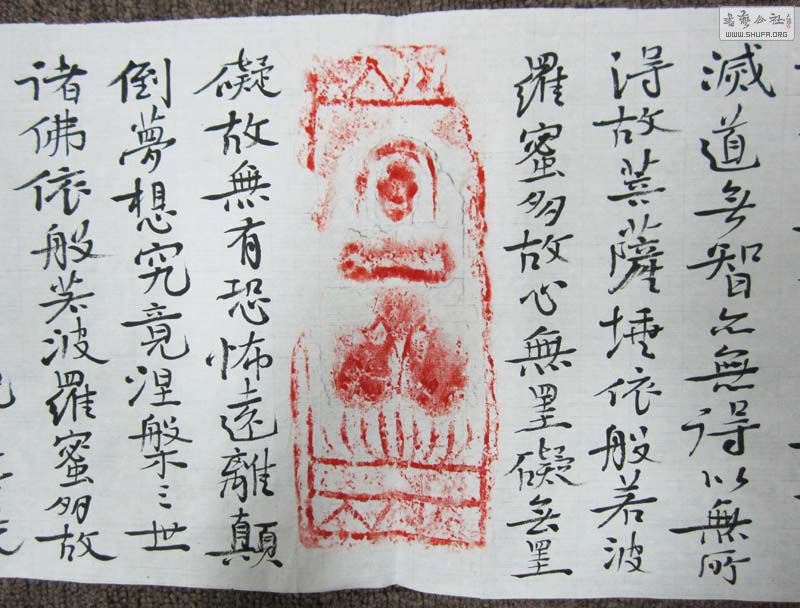 滅道无智亦無得以無所
得故菩薩埵依般若波
羅蜜多故心無罣礙无罣
礙故無有恐怖遠離顛
倒夢想究竟涅槃三世
諸佛依般若波羅蜜多故
書藝公社
WWW.SHUFA.ORG